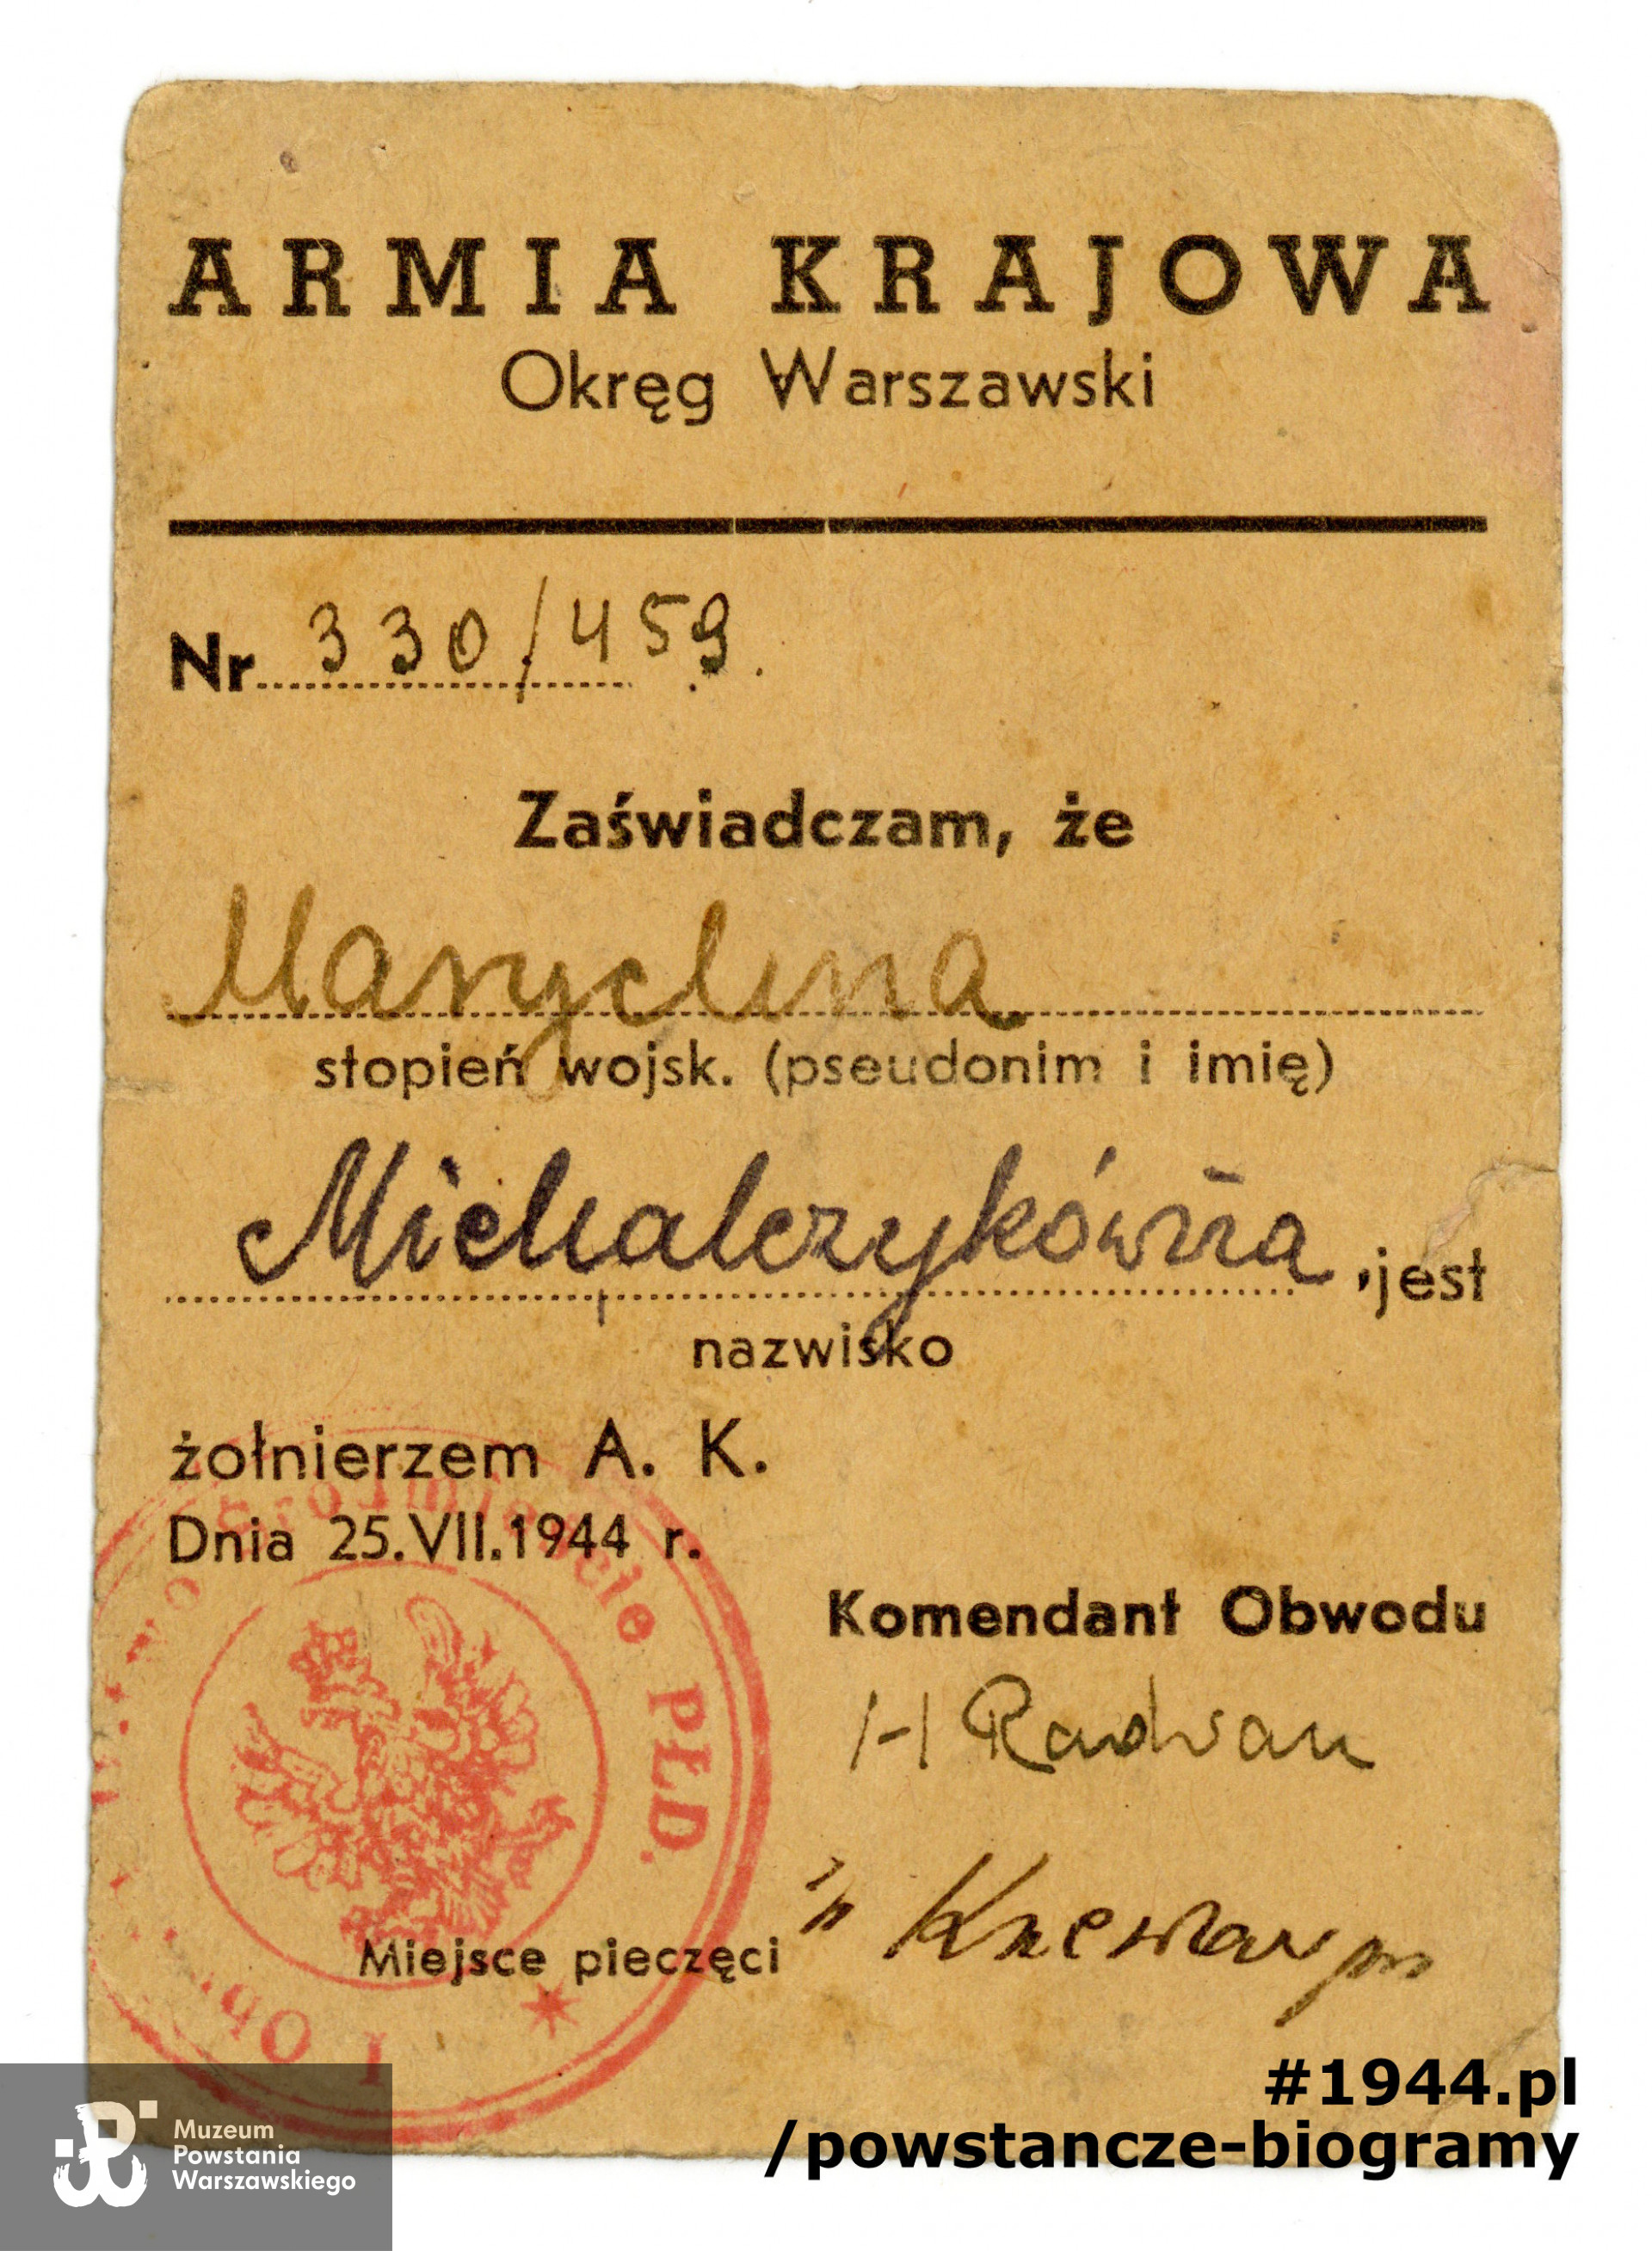 ARMIA KRAJOWA
Okręg Warszawski
Nr 330/459.
Zaświadczam, że
Marycha
stopień wojsk. (pseudonim i imię)
Michalczykówna, jest
nazwisko
żołnierzem A. K.
Dnia 25.VII.1944 r.
Śródmieście PŁD.
I
Komendant Obwodu
/-/ Radwan
Miejsce pieczęci
#1944.pl
/powstancze-biogramy
Muzeum
Powstania
Warszawskiego